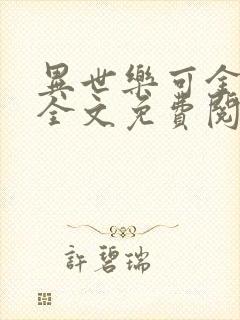 異世樂可全
全文免費閱
許碧瑞